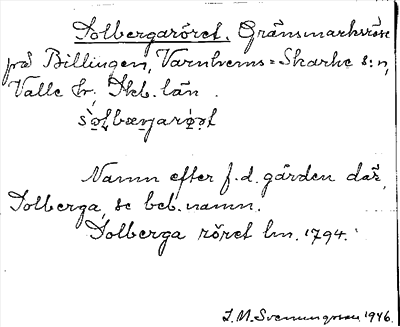 Solbergaröret. Gränsmarksröse
på Billingen, Varnhems = Skarke s:n,
Valle hr, Skb. län.
Namn efter f.d. gården där,
Solberga, se beb.namn.
Solberga röret lm. 1794.
S. M. Svenungsson 1946.